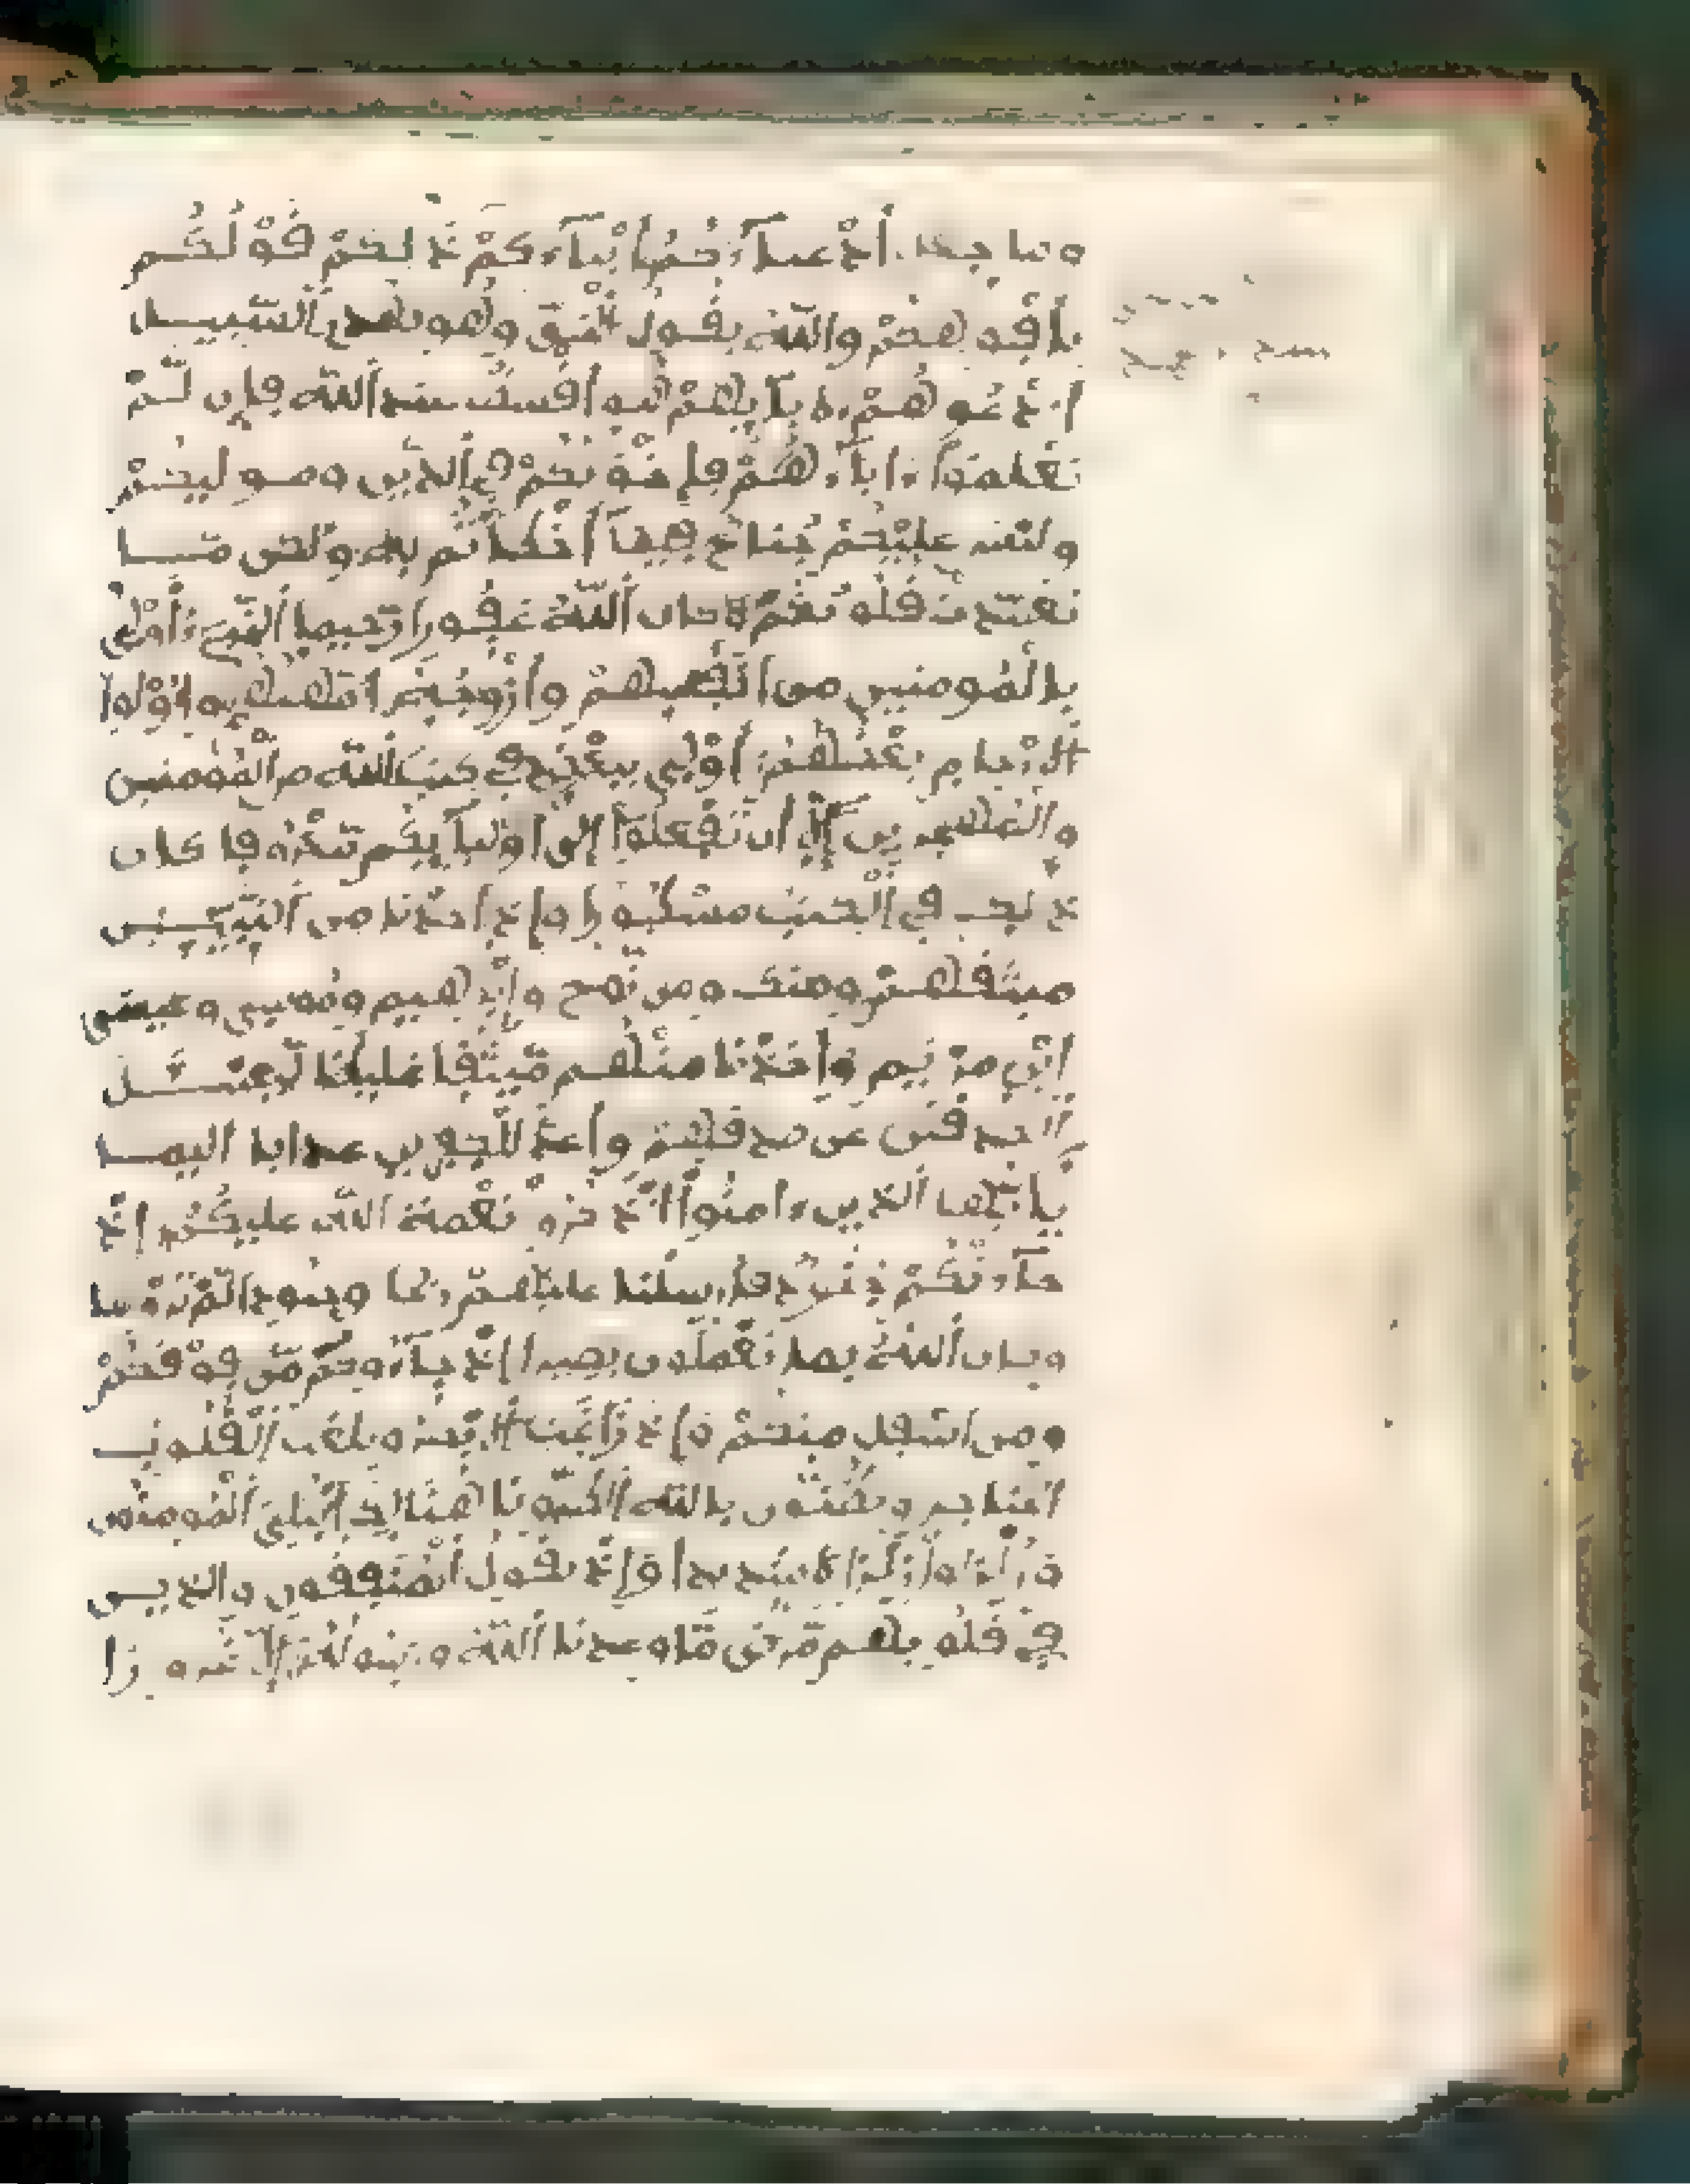 وما جعل أدعياءكم أبناءكم ذلكم قولكم
بأفوهكم والله يقول الحق وهو يهدي السبيل
ادعوهم ءلابايهم هو أقسط عند الله فإن لم
تعلموا ءاباءهم فإخونكم في الدين ومواليكم
وليس عليكم جناح فيما أخطأتم به ولكن ما
تعمدت قلوبكم وكان الله غفورا رحيما النبيء أولى
بالمومنين من أنفسهم وأزوجه أمهتهم وأولوا
الارحام بعضهم أولى ببعض في كتب الله من المومنين
والمهجرين إلا أن تفعلوا إلى أوليايكم معروفا كان
ذلك في الكتب مسطورا وإذ اخذنا من النبيين
ميثقهم ومنك ومن نوح وإبرهيم وموسى وعيسى
ابن مريم وأخذنا منهم ميثقا غليظا ليسئل
الصدقين عن صدقهم وأعد للكفرين عذابا اليما
يأيها الذين ءامنوا اذكروا نعمة الله عليكم إذ
جاءتكم جنود فأرسلنا عليهم ريحا وجنودا لم تروها
وكان الله بما تعملون بصيرا إذ جاءوكم من فوقكم
ومن اسفل منكم وإذ زاغت الابصر وبلغت القلوب
الحناجر وتظنون بالله الظنونا هنالك ابتلي المومنون
وزلزلوا زلزالا شديدا وإذ يقول المنفقون والذين
في قلوبهم مرض ما وعدنا الله ورسوله إلا غرورا